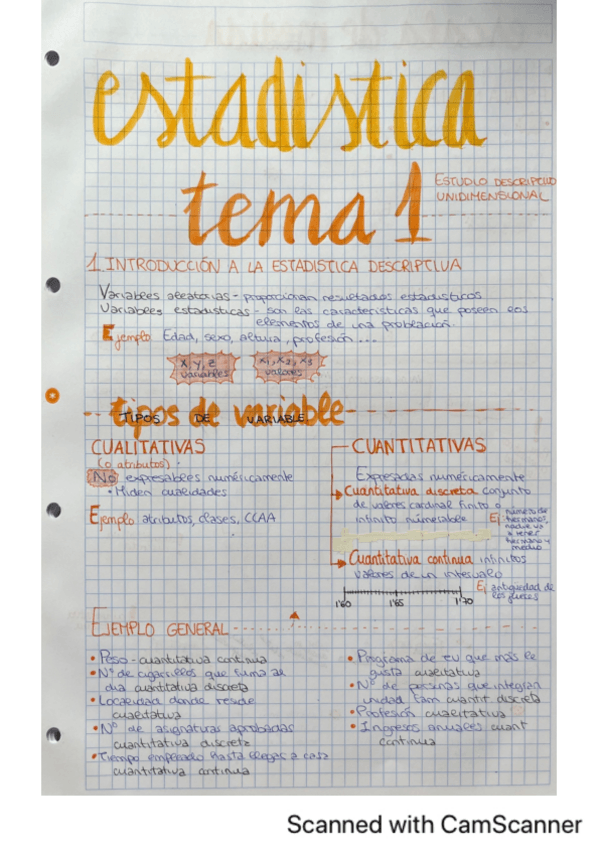 estadistica
tema 1
ESTUDIO DESCRIPTIVO
UNIDIMENSIONAL
1. INTRODUCCIÓN A LA ESTADISTICA DESCRIPTIVA
Variables aleatorias - proporcionan resultados estadisticos
Variables estadisticas - son las caracteristicas que poseen los
elementos de una problación.
Ejemplo Edad, sexo, altura, profesión ...
X, Y, Z
variables
x1, x2, x3
valores
tipos de variable
TIPOS DE VARIABLE
CUALITATIVAS
(o atributos).
No expresables numéricamente
• Miden cualidades
Ejemplo atributos, clases, CCAA
CUANTITATIVAS
Expresadas numéricamente
Cuantitativa discreta conjunto
de valores cardinal finito o
infinito numerable
Ej número de
hermanos,
nadie va
a tener
hermano y
medio
Cuantitativa continua infinitos
valores de un intervalo
Ej antigüedad de
1'60 1'65 1'70
EJEMPLO GENERAL
• Peso - cuantitativa continua
• Nº de cigarrillos que fuma al
dia cuantitativa discreta
• Localidad donde reside
cualitativa
• Nº de asignaturas aprobadas
cuantitativa discreta
• Tiempo empleado hasta llegar a casa
cuantitativa continua
• Programa de tv que más le
gusta cualitativa
• Nº de personas que integran
unidad fam cuantit discreta
• Profesión cualitativa
• Ingresos anuales cuant
continua
Scanned with CamScanner